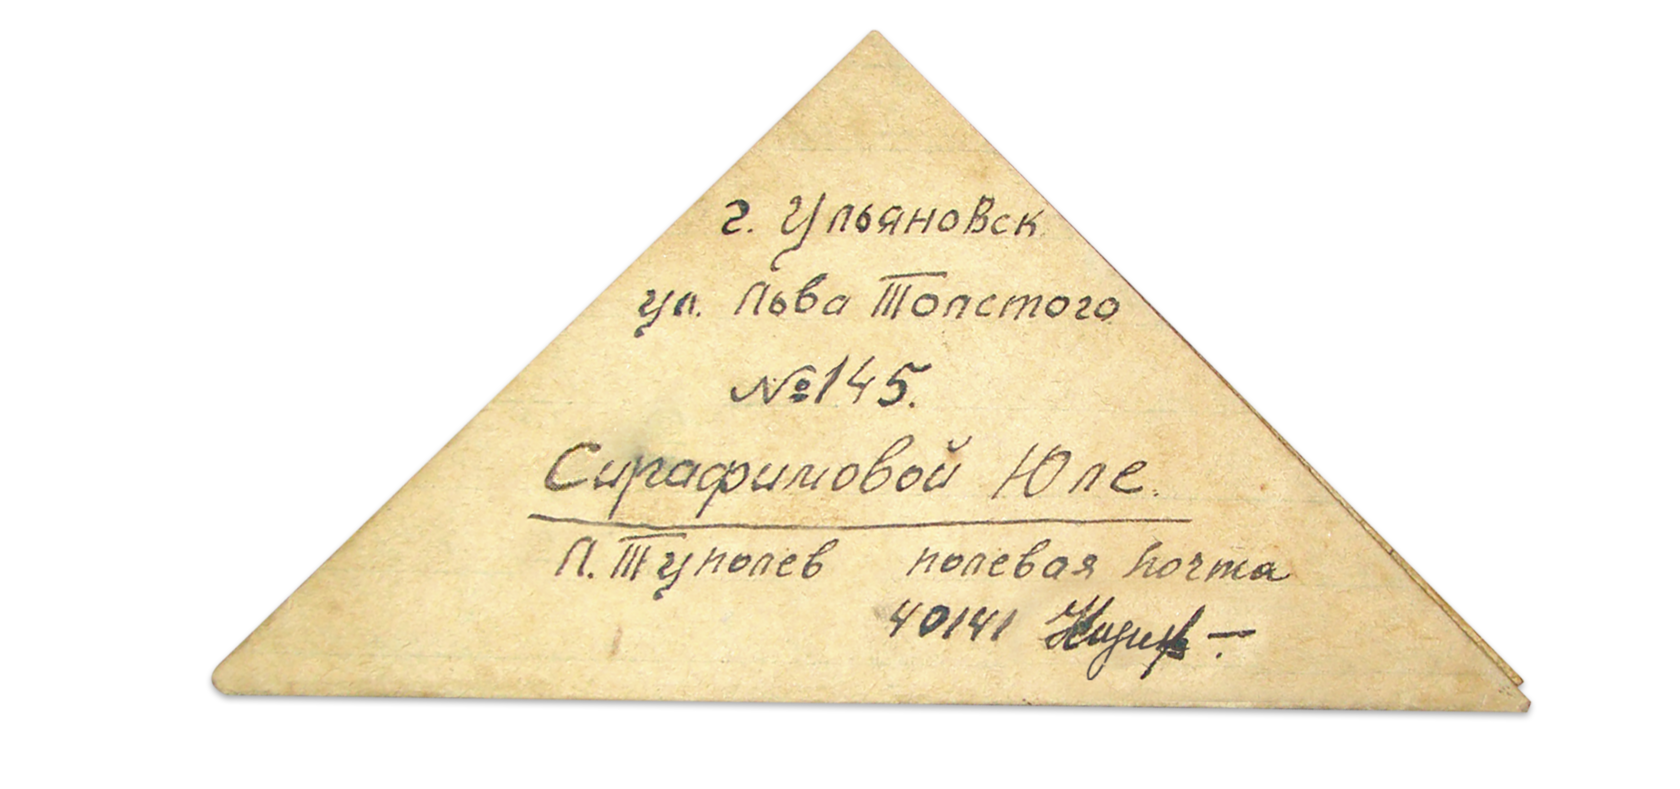 г. Ульяновск
ул. Льва Толстого
№145.
Сирафимовой Юле.
Л. Туполев полевая почта
40141